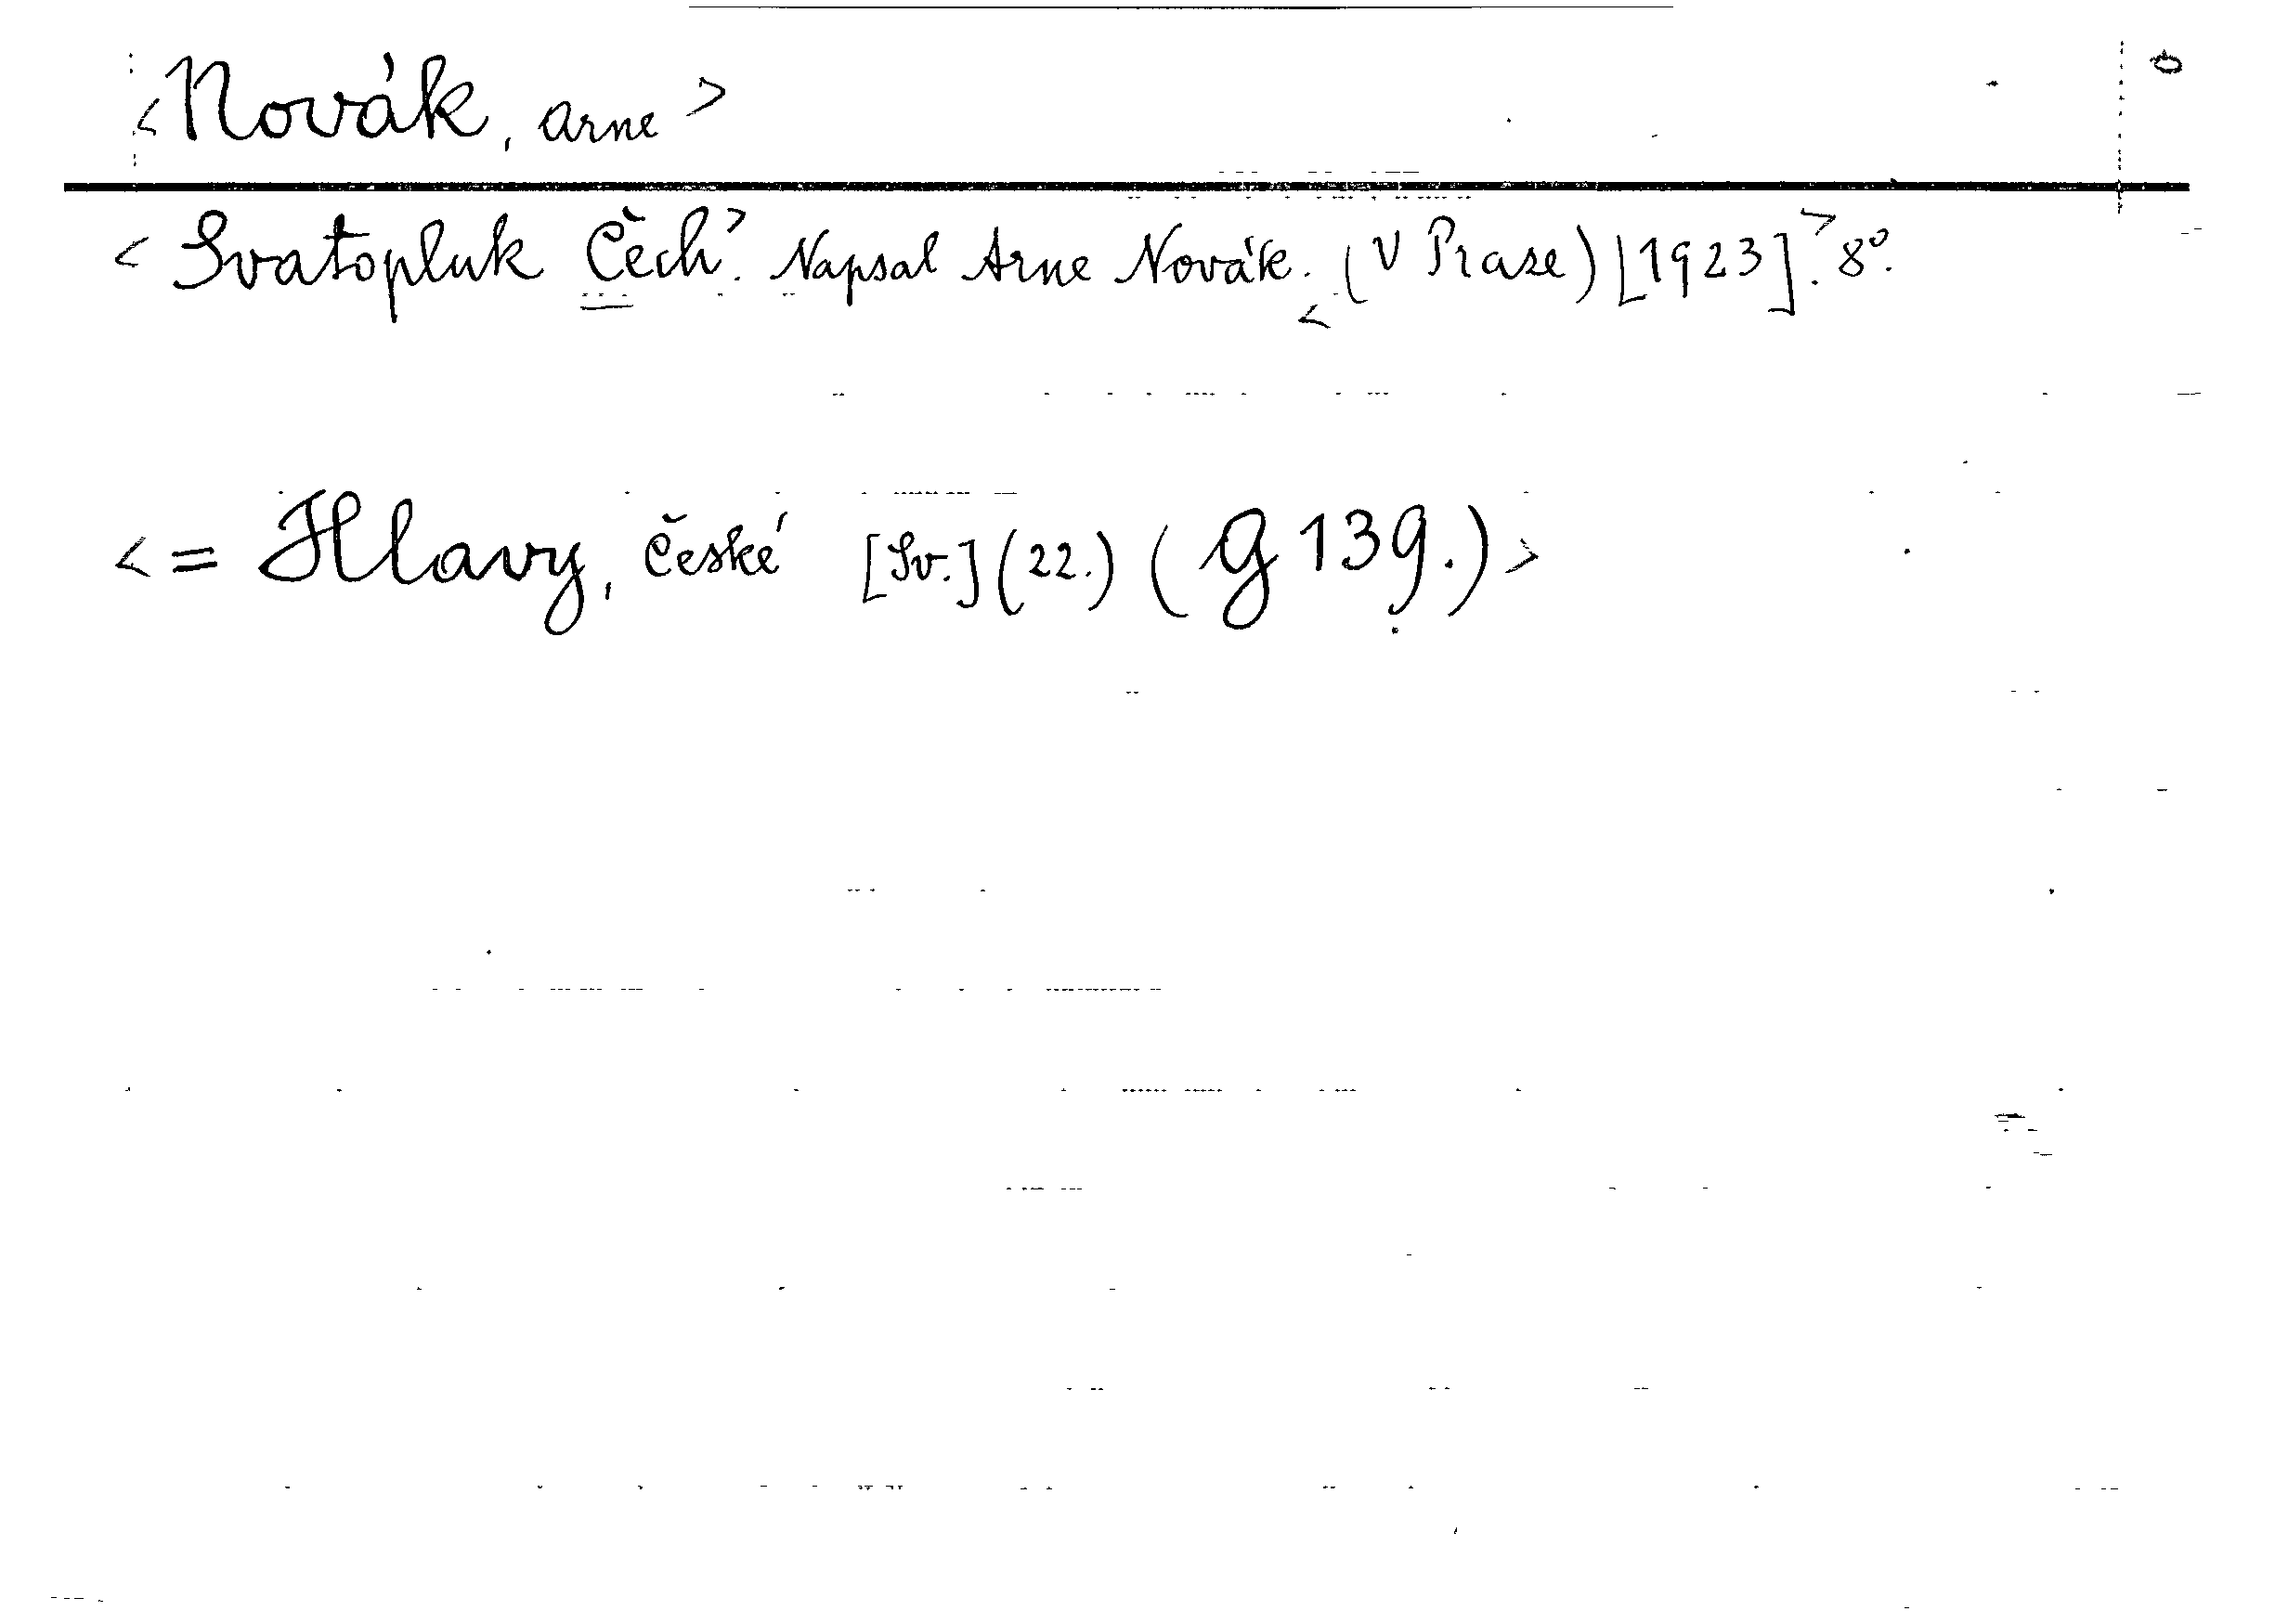 <Novák, Arne>
<Svatopluk Čech>. Napsal Arne Novák. <(V Praze) [1923].> 8°.
<= Hlavy, České [Sv.] (22.) (G 139.)>